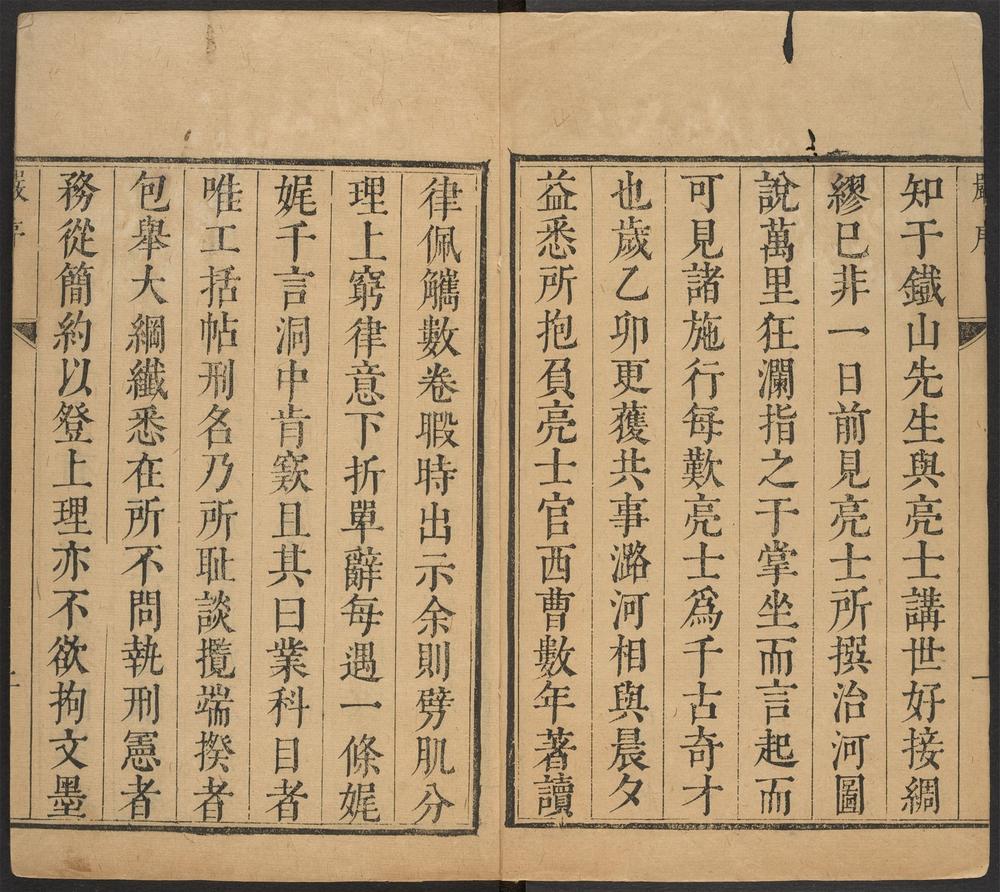 知于鐵山先生與亮士講世好接綢
繆已非一日前見亮士所撰治河圖
說萬里狂瀾指之于掌坐而言起而
可見諸施行每歎亮士爲千古奇才
也歲乙卯更獲共事潞河相與晨夕
益悉所抱負亮士官西曹數年著讀
律佩觿數卷暇時出示余則劈肌分
理上窮律意下折單辭每遇一條娓
娓千言洞中肯窾且其曰業科目者
唯工括帖刑名乃所耻談攬端揆者
包舉大綱纖悉在所不問執刑憲者
務從簡約以登上理亦不欲拘文墨